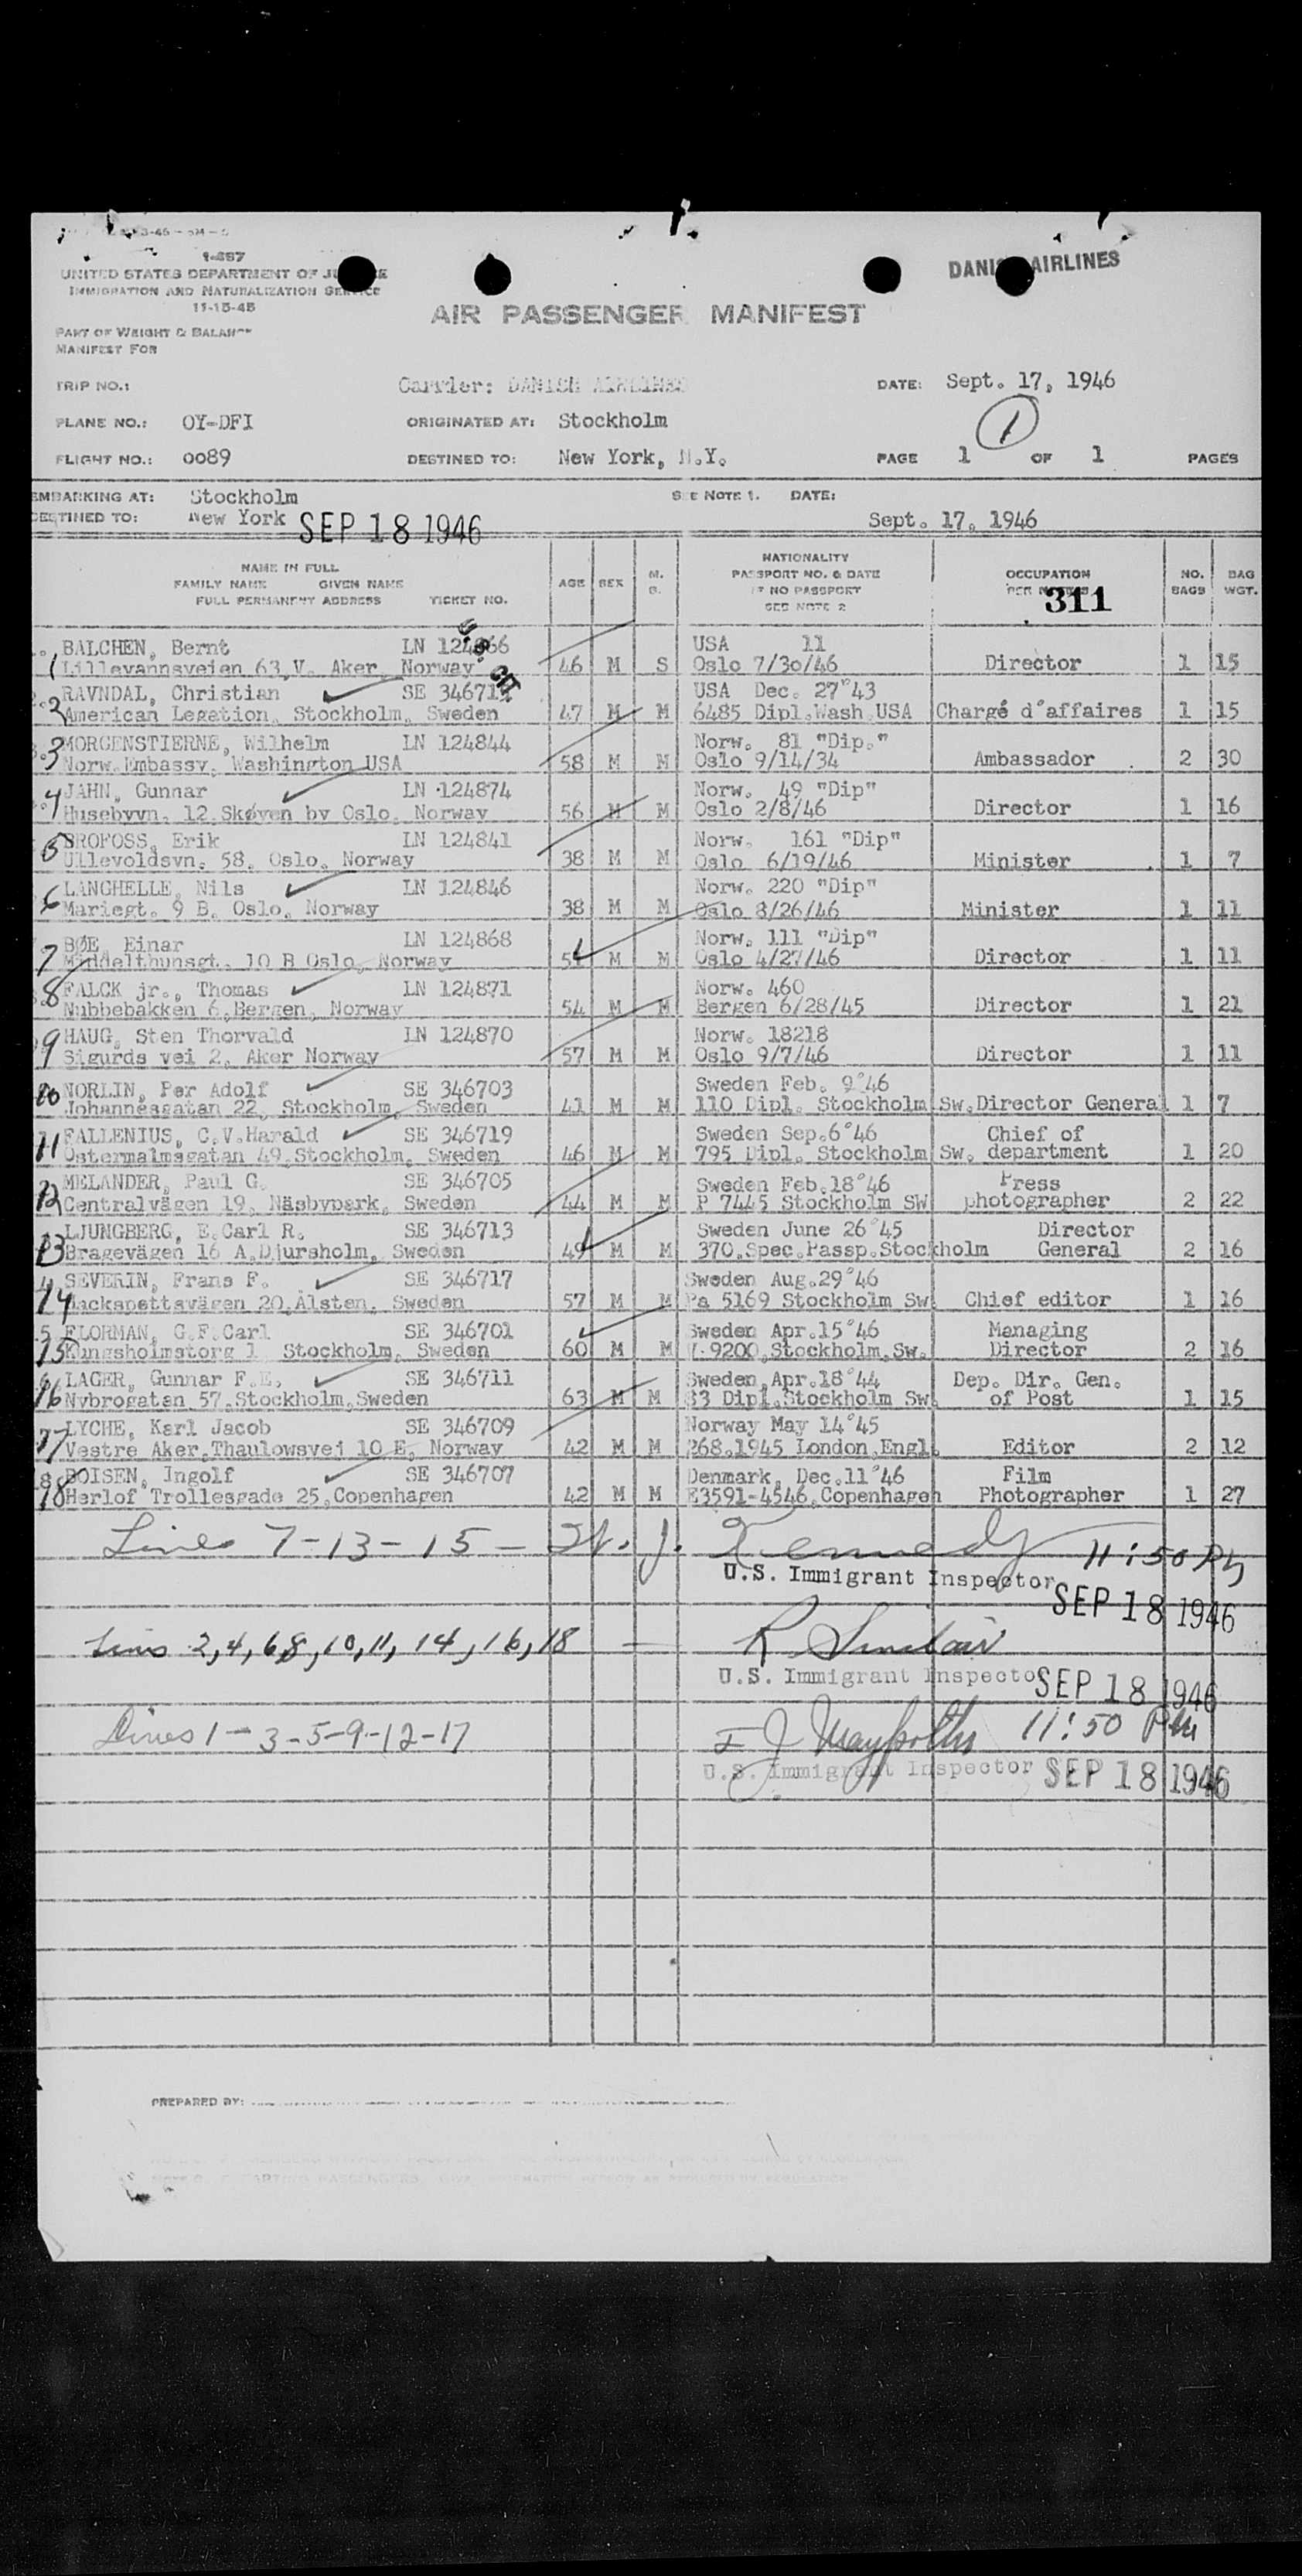 1-687
UNITED STATES DEPARTMENT OF
IMMIGRATION AND NATURALIZATION SERVICE
11-15-45
DANISH AIRLINES
AIR PASSENGER MANIFEST
PART OF WEIGHT & BALANCE
MANIFEST FOR
TRIP NO.: Carrier: DANISH AIRLINES DATE: Sept. 17, 1946
PLANE NO.: OY-DFI ORIGINATED AT: Stockholm 1
FLIGHT NO.: 0089 DESTINED TO: New York, N.Y. PAGE 1 OF 1 PAGES
EMBARKING AT: Stockholm SEE NOTE 1. DATE:
DESTINED TO: New York SEP 18 1946 Sept. 17. 1946
NAME IN FULL
FAMILY NAME GIVEN NAME
FULL PERMANENT ADDRESS TICKET NO. AGE SEX M. S. NATIONALITY PASSPORT NO. & DATE IF NO PASSPORT SEE NOTE 2 OCCUPATION 311 NO. BAGS BAG WGT.
BALCHEN, Bernt LN 124866 U.S. CIT USA 11
1 Lillevannsveien 63,V. Aker, Norway 46 M S Oslo 7/30/46 Director 1 15
RAVNDAL, Christian SE 34671 USA Dec. 27°43
2 American Legation. Stockholm. Sweden 47 M M 6485 Dipl.Wash USA Chargé d'affaires 1 15
3 MORGENSTIERNE, Wilhelm LN 124844 Norw. 81 "Dip."
Norw.Embassy. Washington USA 58 M M Oslo 9/14/34 Ambassador 2 30
4 JAHN, Gunnar LN 124874 Norw. 49 "Dip"
Husebyvn. 12.Skøyen by Oslo. Norway 56 M M Oslo 2/8/46 Director 1 16
5 BROFOSS, Erik LN 124841 Norw. 161 "Dip"
Ullevoldsvn. 58. Oslo. Norway 38 M M Oslo 6/19/46 Minister 1 7
6 LANGHELLE, Nils LN 124846 Norw. 220 "Dip"
Mariegt. 9 B. Oslo. Norway 38 M M Oslo 8/26/46 Minister 1 11
7 BØE, Einar LN 124868 Norw. 111 "Dip"
Middelthunsgt. 10 B Oslo, Norway M M Oslo 4/27/46 Director 1 11
8 FALCK jr., Thomas LN 124871 Norw. 460
Nubbebakken 6.Bergen, Norway 54 M M Bergen 6/28/45 Director 1 21
9 HAUG, Sten Thorvald LN 124870 Norw. 18218
Sigurds vei 2. Aker Norway 57 M M Oslo 9/7/46 Director 1 11
10 NORLIN, Per Adolf SE 346703 Sweden Feb. 9°46
Johannesgatan 22, Stockholm, Sweden 41 M M 110 Dipl. Stockholm Sw. Director General 1 7
11 FALLENIUS, C.V.Harald SE 346719 Sweden Sep.6°46 Chief of
Ostermalmsgatan 49.Stockholm. Sweden 46 M M 795 Dipl. Stockholm Sw. department 1 20
12 MELANDER, Paul G. SE 346705 Sweden Feb.18°46 Press
Centralvägen 19. Näsbypark. Sweden 44 M M P 7445 Stockholm SW photographer 2 22
13 LJUNGBERG, E.Carl R. SE 346713 Sweden June 26°45 Director
Bragevägen 16 A.Djursholm. Sweden 49 M M 370.Spec.Passp.Stockholm General 2 16
14 SEVERIN, Frans F. SE 346717 Sweden Aug.29°46
Hackspettsvägen 20.Älsten. Sweden 57 M M Pa 5169 Stockholm Sw. Chief editor 1 16
15 FLORMAN, G.F.Carl SE 346701 Sweden Apr.15°46 Managing
Kungsholmstorg 1 Stockholm. Sweden 60 M M 9200.Stockholm.Sw. Director 2 16
16 LAGER, Gunnar F.E. SE 346711 Sweden,Apr.18°44 Dep. Dir. Gen.
Nybrogatan 57.Stockholm.Sweden 63 M M 83 Dipl.Stockholm Sw. of Post 1 15
17 LYCHE, Karl Jacob SE 346709 Norway May 14°45
Vestre Aker.Thaulowsvei 10 E. Norway 42 M M 268.1945 London.Engl. Editor 2 12
18 BOISEN, Ingolf SE 346707 Denmark, Dec.11°46 Film
Herlof Trollesgade 25.Copenhagen 42 M M E3591-4546.Copenhagen Photographer 1 27
Lines 7-13-15 - J. Kennedy 11:50 PM
U.S. Immigrant Inspector SEP 18 1946
Lines 2,4,6,8,10,11,14,16,18 — R Sinclair
U.S. Immigrant Inspector SEP 18 1946
Lines 1-3-5-9-12-17 11:50 PM
U.S. Immigrant Inspector SEP 18 1946
PREPARED BY: